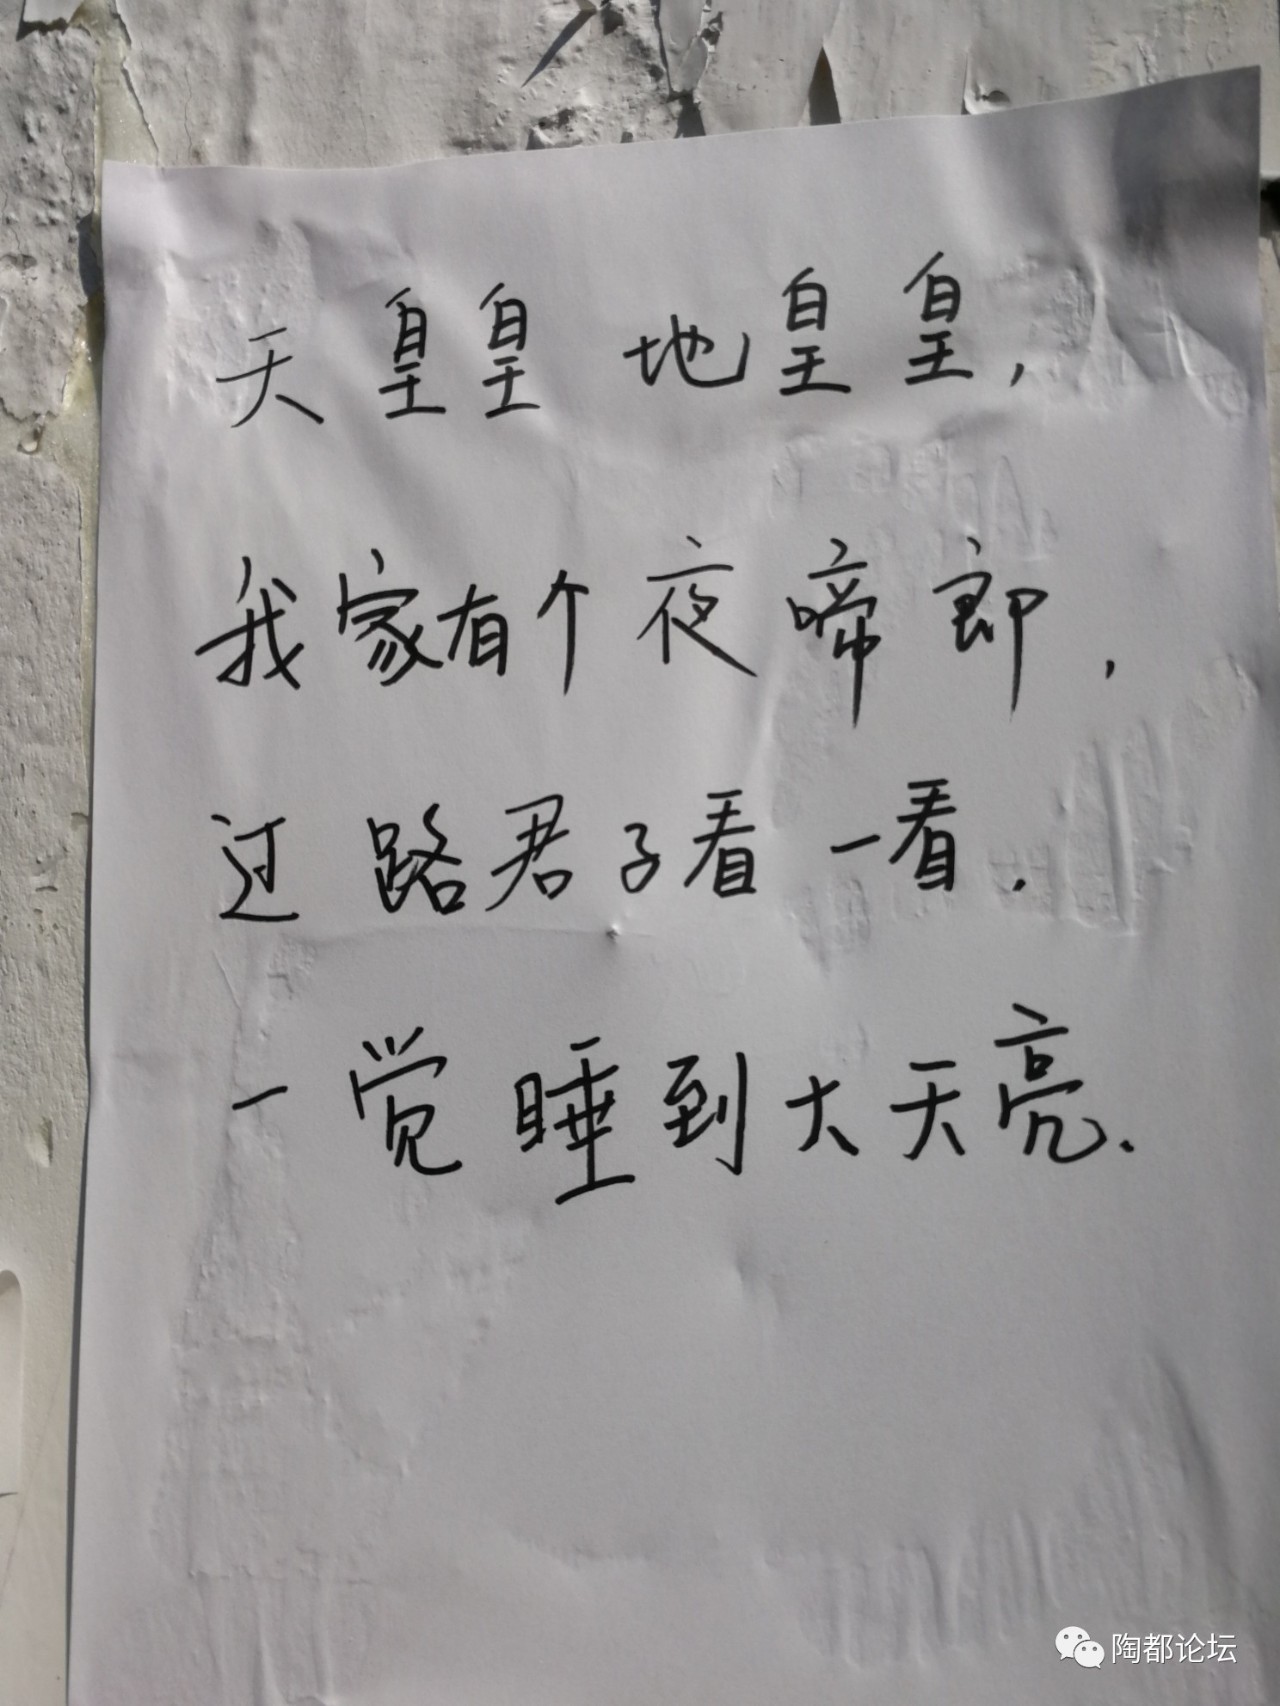 天皇皇 地皇皇，
我家有个夜啼郎，
过路君子看一看，
一觉睡到大天亮.
陶都论坛